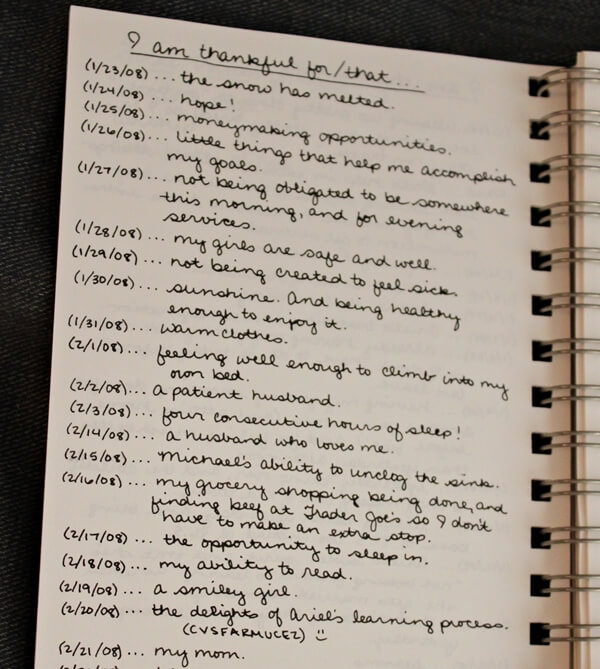 I am thankful for/that...
(1/23/08)... the snow has melted.
(1/24/08)... hope!
(1/25/08)... moneymaking opportunities.
(1/26/08)... little things that help me accomplish
my goals.
(1/27/08)... not being obligated to be somewhere
this morning, and for evening
services.
(1/28/08)... my girls are safe and well.
(1/29/08)... not being created to feel sick.
(1/30/08)... sunshine. And being healthy
enough to enjoy it.
(1/31/08)... warm clothes.
(2/1/08)... feeling well enough to climb into my
own bed.
(2/2/08)... a patient husband.
(2/3/08)... four consecutive hours of sleep!
(2/14/08)... a husband who loves me.
(2/15/08)... Michael's ability to unclog the sink.
(2/16/08)... my grocery shopping being done, and
finding beef at Trader Joe's so I don't
have to make an extra stop.
(2/17/08)... the opportunity to sleep in.
(2/18/08)... my ability to read.
(2/19/08)... a smiley girl.
(2/20/08)... the delights of Ariel's learning process.
(CVSFARMUCEZ) :)
(2/21/08)... my mom.